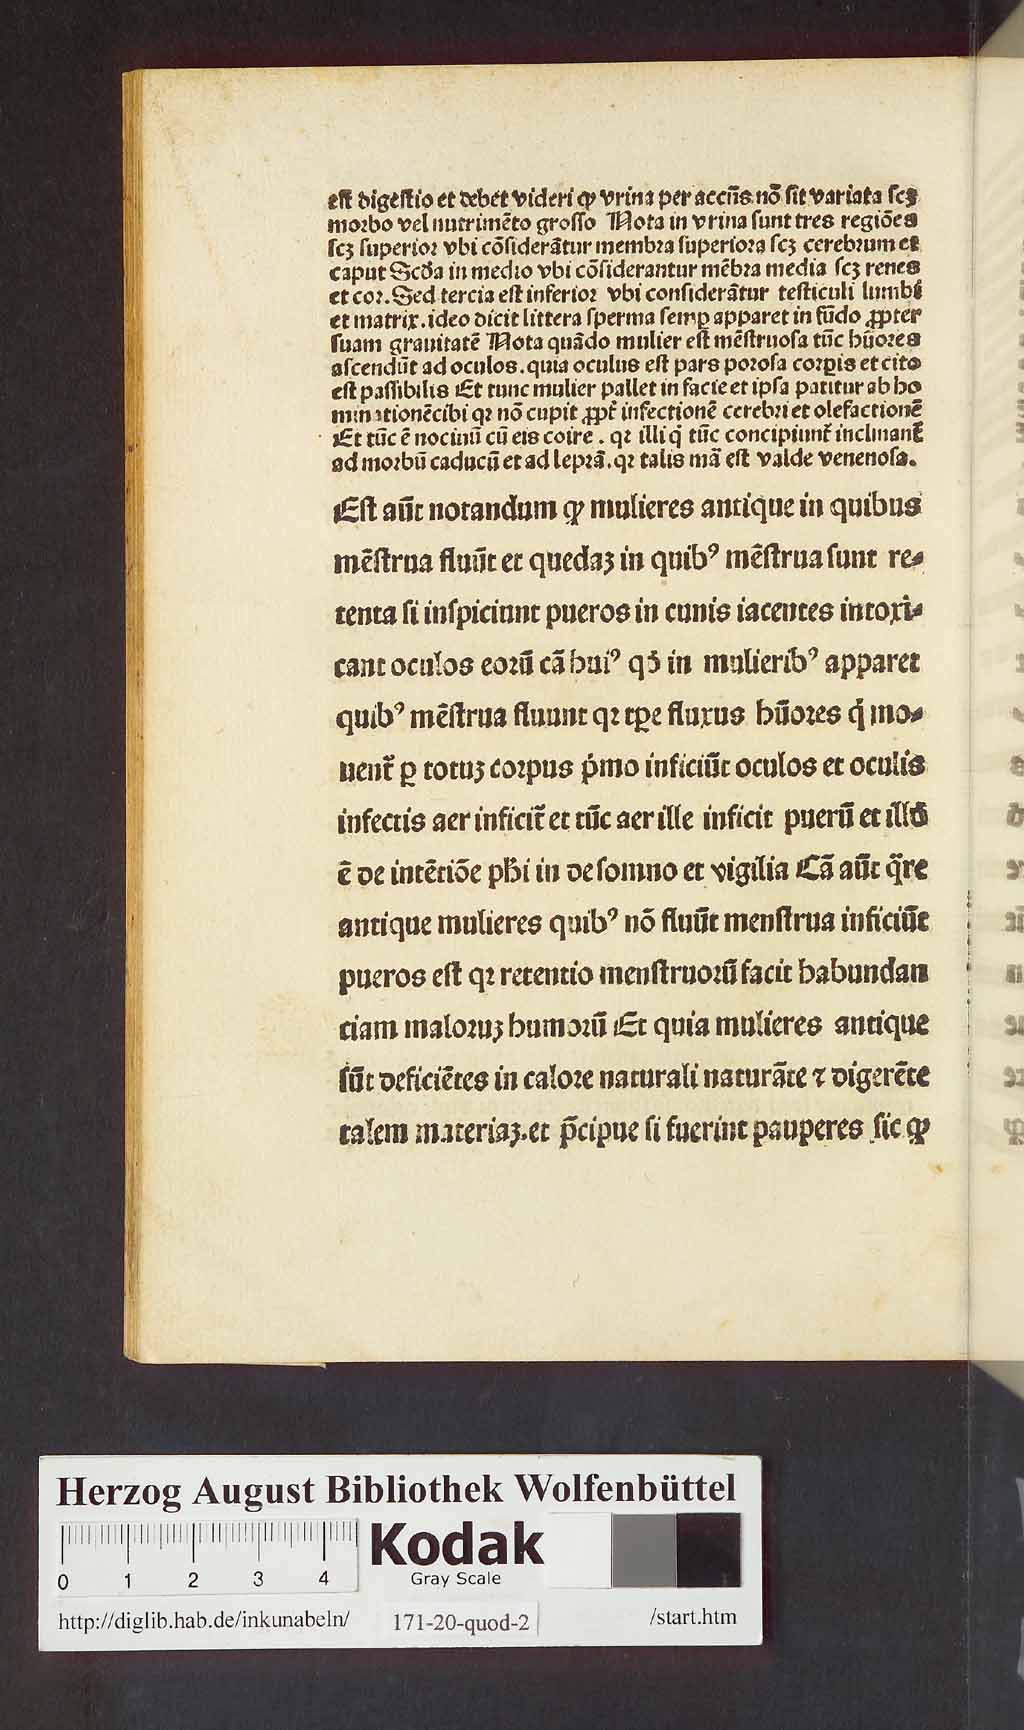 est digestio et debet videri ꝙ vrina per acc̄ns nō sit variata scꝫ
morbo vel nutrimēto grosso Nota in vrina sunt tres regiōes
scꝫ superior vbi cōsiderātur membra superiora scꝫ cerebrum et
caput Scd̄a in medio vbi cōsiderantur mēbra media scꝫ renes
et cor. Sed tercia est inferior vbi considerātur testiculi lumbi
et matrix. ideo dicit littera sperma semꝑ apparet in fūdo ꝓpter
suam grauitatē Nota quādo mulier est mēstruosa tūc hūores
ascendūt ad oculos. quia oculus est pars porosa corꝑis et cito
est passibilis Et tunc mulier pallet in facie et ipsa patitur ab ho
minationēcibi qꝛ nō cupit ꝓpt̄ infectionē cerebri et olefactionē
Et tūc ē nociuū cū eis coire. qꝛ illi q̇ tūc concipiunt᷑ inclinant᷑
ad morbū caducū et ad leprā. qꝛ talis mā est valde venenosa.
Est aūt notandum ꝙ mulieres antique in quibus
mēstrua fluūt et quedaꝫ in quibꝰ mēstrua sunt re⸗
tenta si inspiciunt pueros in cunis iacentes intoxi⸗
cant oculos eorū cā huiꝰ qd̄ in mulieribꝰ apparet
quibꝰ mēstrua fluunt qꝛ tꝑe fluxus hūores q̇ mo⸗
uent᷑ ꝑ totuꝫ corpus p̄mo inficiūt oculos et oculis
infectis aer inficit᷑ et tūc aer ille inficit puerū et illd̄
ē de intētiōe ph̄i in de somno et vigilia Cā aūt q̄re
antique mulieres quibꝰ nō fluūt menstrua inficiūt
pueros est qꝛ retentio menstruorū facit habundan
tiam maloruꝫ humorū Et quia mulieres antique
sūt deficiētes in calore naturali naturāte ⁊ digerēte
talem materiaꝫ. et p̄cipue si fuerint pauperes sic ꝙ
Herzog August Bibliothek Wolfenbüttel
0 1 2 3 4
Kodak
Gray Scale
http://diglib.hab.de/inkunabeln/ 171-20-quod-2 /start.htm